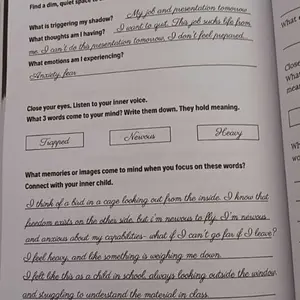 Find a dim, quiet space
What is triggering my shadow? My job and presentation tomorrow
What thoughts am I having? I want to quit. This job sucks life from
me. I can't do this presentation tomorrow, I don't feel prepared
What emotions am I experiencing?
Anxiety, fear
Close your eyes. Listen to your inner voice.
What 3 words come to your mind? Write them down. They hold meaning.
Trapped Nervous Heavy
What memories or images come to mind when you focus on these words?
Connect with your inner child.
I think of a bird in a cage looking out from the inside. I know that
freedom exists on the other side but i'm nervous to fly. I'm nervous
and anxious about my capabilities- what if I can't go far if I leave?
I feel heavy, and like something is weighing me down.
I felt like this as a child in school, always looking outside the window
and struggling to understand the material in class.
What
Close
What